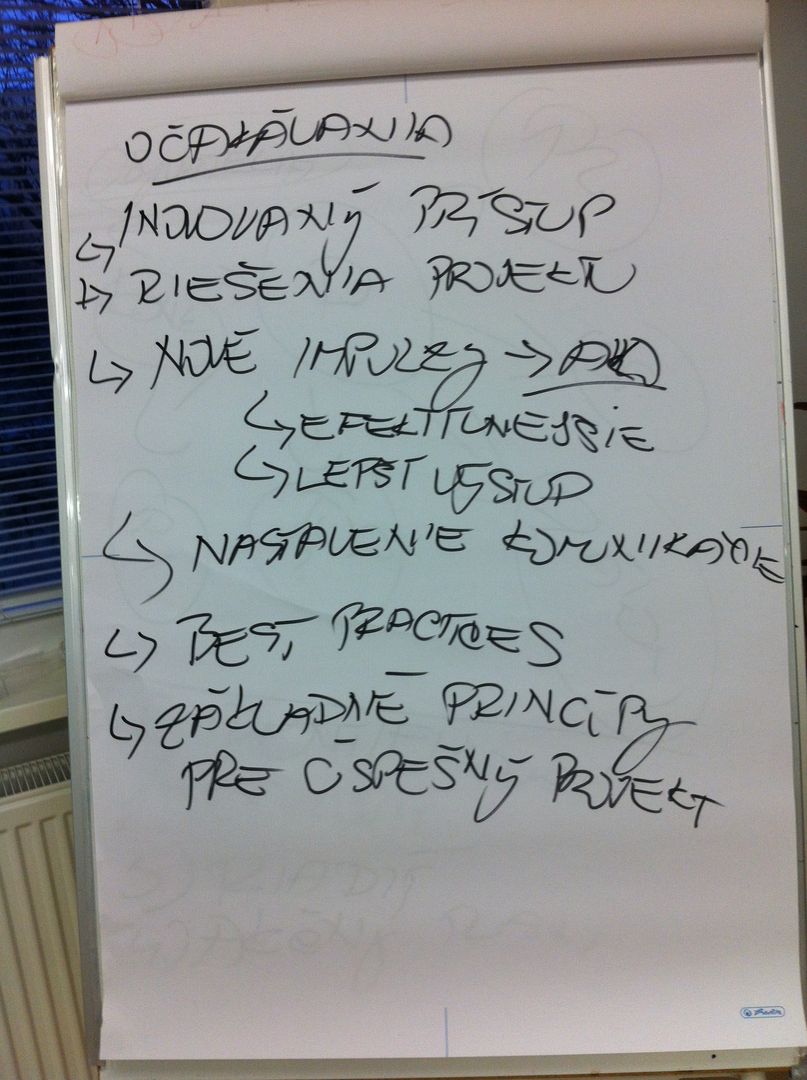 OČAKÁVANIA
↳ INOVOVANÝ PRÍSTUP
↳ RIEŠENIA PROJEKTU
↳ NOVÉ IMPULZY → AKO
↳ EFEKTÍVNEJŠIE
↳ LEPŠÍ VÝSTUP
↳ NASTAVENIE KOMUNIKÁCIE
↳ BEST PRACTICES
↳ ZÁKLADNÉ PRINCÍPY
PRE ÚSPEŠNÝ PROJEKT